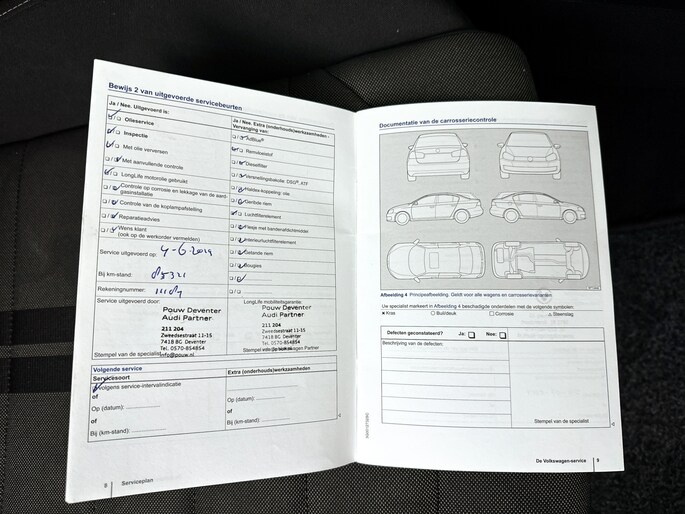 Bewijs 2 van uitgevoerde servicebeurten
Ja / Nee. Uitgevoerd is:
Olieservice
Inspectie
Met olie verversen
Met aanvullende controle
LongLife motorolie gebruikt
Controle op corrosie en lekkage van de aard-
gasinstallatie
Controle van de koplampafstelling
Reparatieadvies
Wens klant
(ook op de werkorder vermelden)
Service uitgevoerd op: 4-6-2019
Bij km-stand:
Rekeningnummer:
Service uitgevoerd door:
Pouw Deventer
Audi Partner
211 204
Zweedsestraat 11-15
7418 BG Deventer
Tel. 0570-854854
info@pouw.nl
Stempel van de specialist
Ja / Nee. Extra (onderhouds)werkzaamheden -
Vervanging van:
AdBlue®
Remvloeistof
Dieselfilter
Versnellingsbakolie: DSG®, ATF
Haldex-koppeling: olie
Getande riem
Luchtfilterelement
Flesje met bandenafdichtmiddel
Interieurluchtfilterelement
Getande riem
Bougies
LongLife mobiliteitsgarantie:
Pouw Deventer
Audi Partner
211 204
Zweedsestraat 11-15
7418 BG Deventer
Tel. 0570-854854
Volgende service
Servicesoort
Volgens service-intervalindicatie
of
Op (datum):
of
Bij (km-stand):
Extra (onderhouds)werkzaamheden
Op (datum):
of
Bij (km-stand):
8 Serviceplan
Documentatie van de carrosseriecontrole
Afbeelding 4 Principeafbeelding. Geldt voor alle wagens en carrosserievarianten
Uw specialist markeert in Afbeelding 4 beschadigde onderdelen met de volgende symbolen:
Kras
Buil/deuk
Corrosie
Steenslag
Defecten geconstateerd?
Ja:
Nee:
Beschrijving van de defecten:
Stempel van de specialist
De Volkswagen-service 9